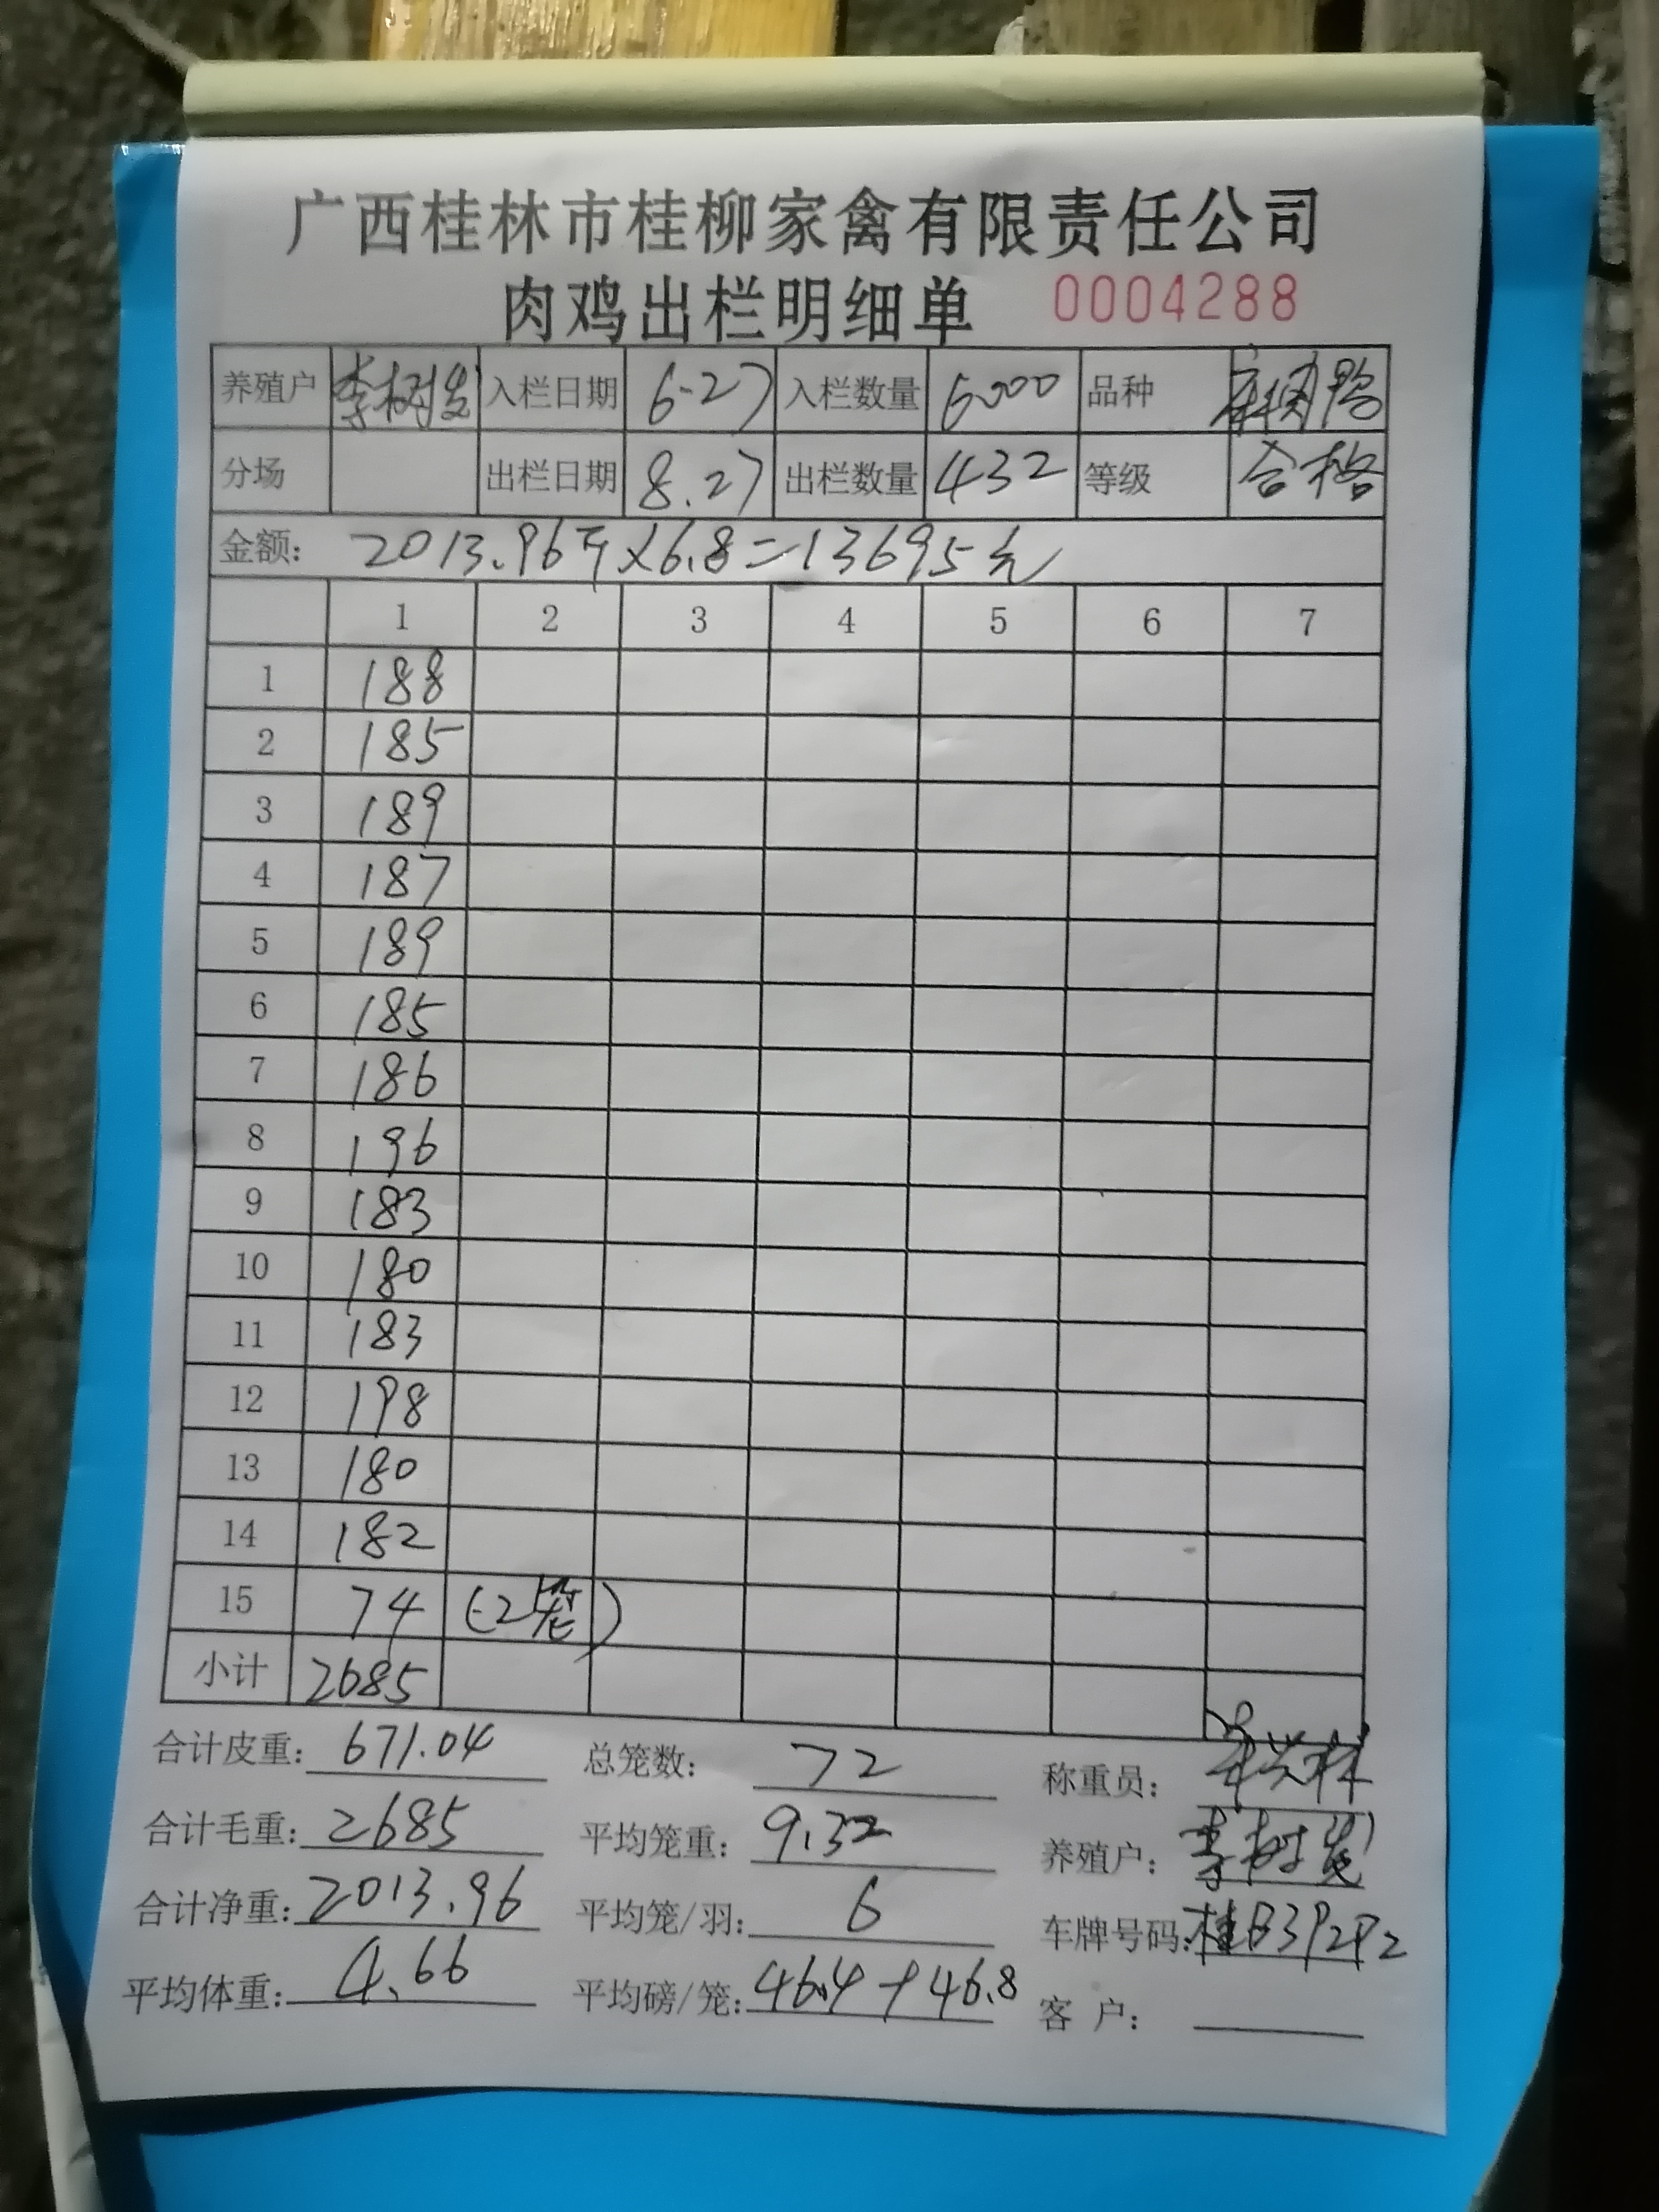 广西桂林市桂柳家禽有限责任公司
肉鸡出栏明细单 0004288
养殖户 李树发 入栏日期 6-27 入栏数量 5000 品种
分场 出栏日期 8.27 出栏数量 432 等级 合格
金额: 2013.96斤×6.8=13695元
1 2 3 4 5 6 7
1 188
2 185
3 189
4 187
5 189
6 185
7 186
8 196
9 183
10 180
11 183
12 198
13 180
14 182
15 74 (2笼)
小计 2685
合计皮重: 671.04 总笼数: 72 称重员:
合计毛重: 2685 平均笼重: 9.32 养殖户: 李树发
合计净重: 2013.96 平均笼/羽: 6 车牌号码: 桂B3P2P2
平均体重: 4.66 平均磅/笼: 46.4+46.8 客 户: